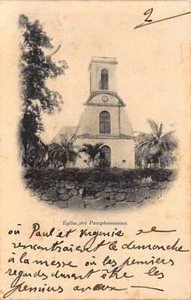 2
Église des Pamplemousses
où Paul et Virginie se
rencontraient le dimanche
à la messe où les premiers
regards durant être les
premiers aveux —